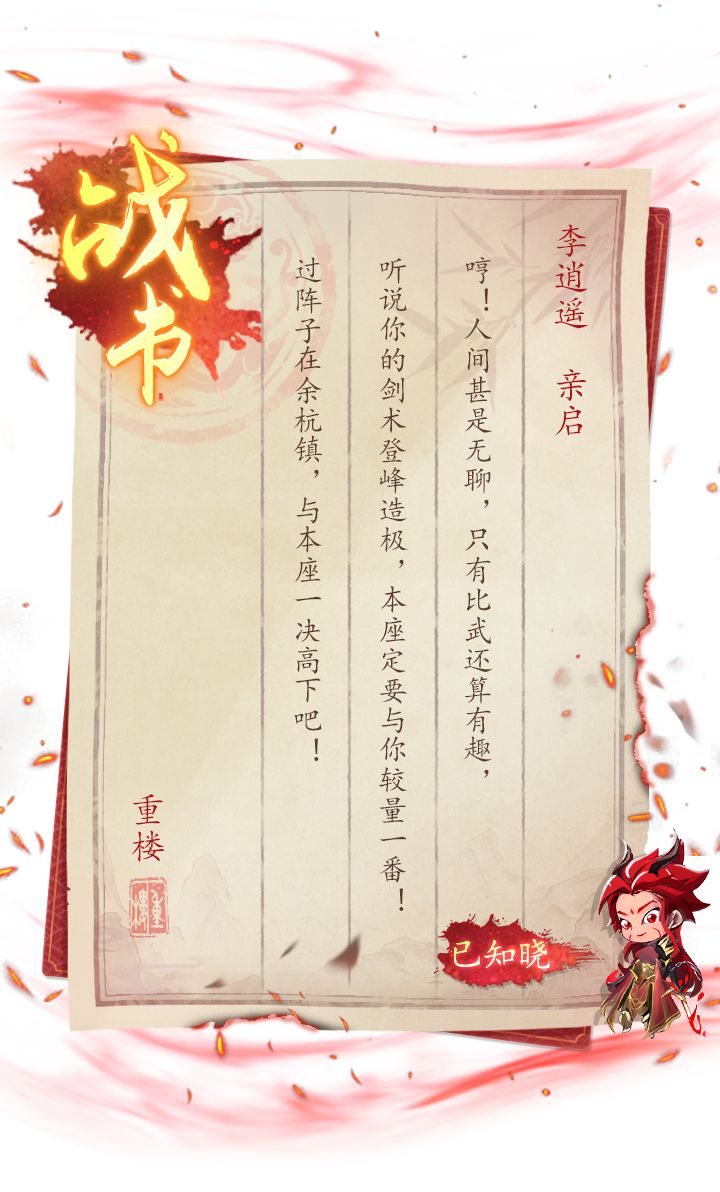 战书
李逍遥 亲启
哼！人间甚是无聊，只有比武还算有趣，
听说你的剑术登峰造极，本座定要与你较量一番！
过阵子在余杭镇，与本座一决高下吧！
重楼
重樓
已知晓